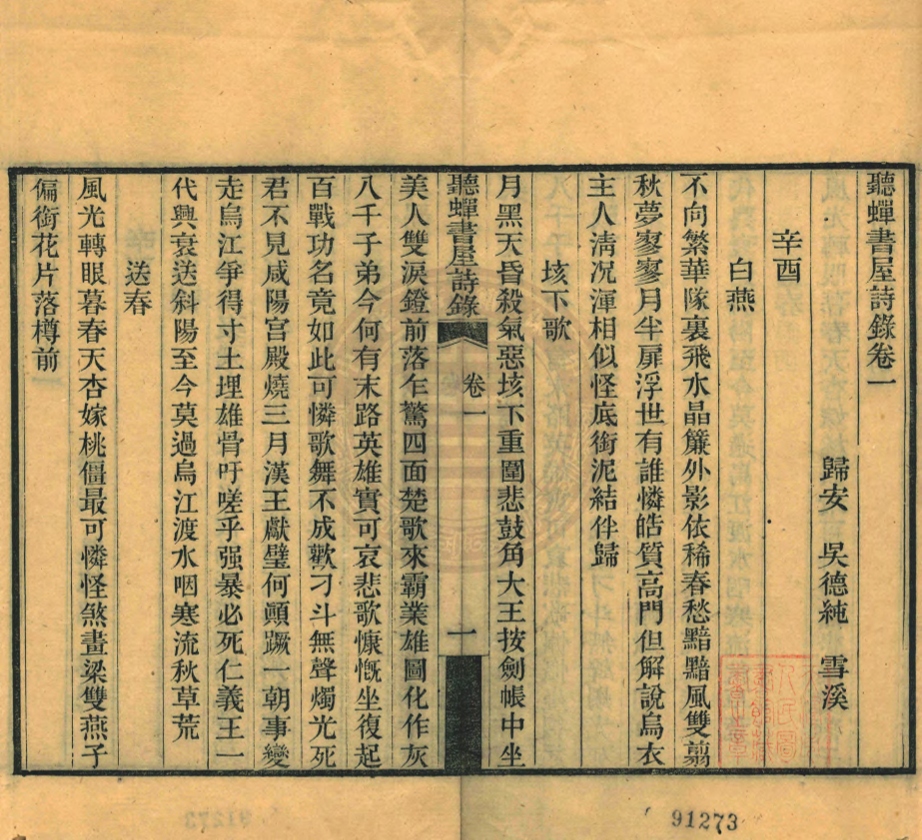 聽蟬書屋詩錄卷一
歸安　吳德純　雪溪
辛酉
白燕
不向繁華隊裏飛水晶簾外影依稀春愁黯黯風雙翦
秋夢寥寥月半扉浮世有誰憐皓質高門但解說烏衣
主人淸况渾相似怪底銜泥結伴歸
垓下歌
月黑天昏殺氣惡垓下重圍悲鼓角大王按劍帳中坐
聽蟬書屋詩錄　卷一　一
美人雙淚鐙前落乍驚四面楚歌來霸業雄圖化作灰
八千子弟今何有末路英雄實可哀悲歌慷慨坐復起
百戰功名竟如此可憐歌舞不成歡刁斗無聲燭光死
君不見咸陽宮殿燒三月漢王獻璧何顛蹶一朝事變
走烏江爭得寸土埋雄骨吁嗟乎强暴必死仁義王一
代興衰送斜陽至今莫過烏江渡水咽寒流秋草荒
送春
風光轉眼暮春天杏嫁桃僵最可憐怪煞畫梁雙燕子
偏銜花片落樽前
91273